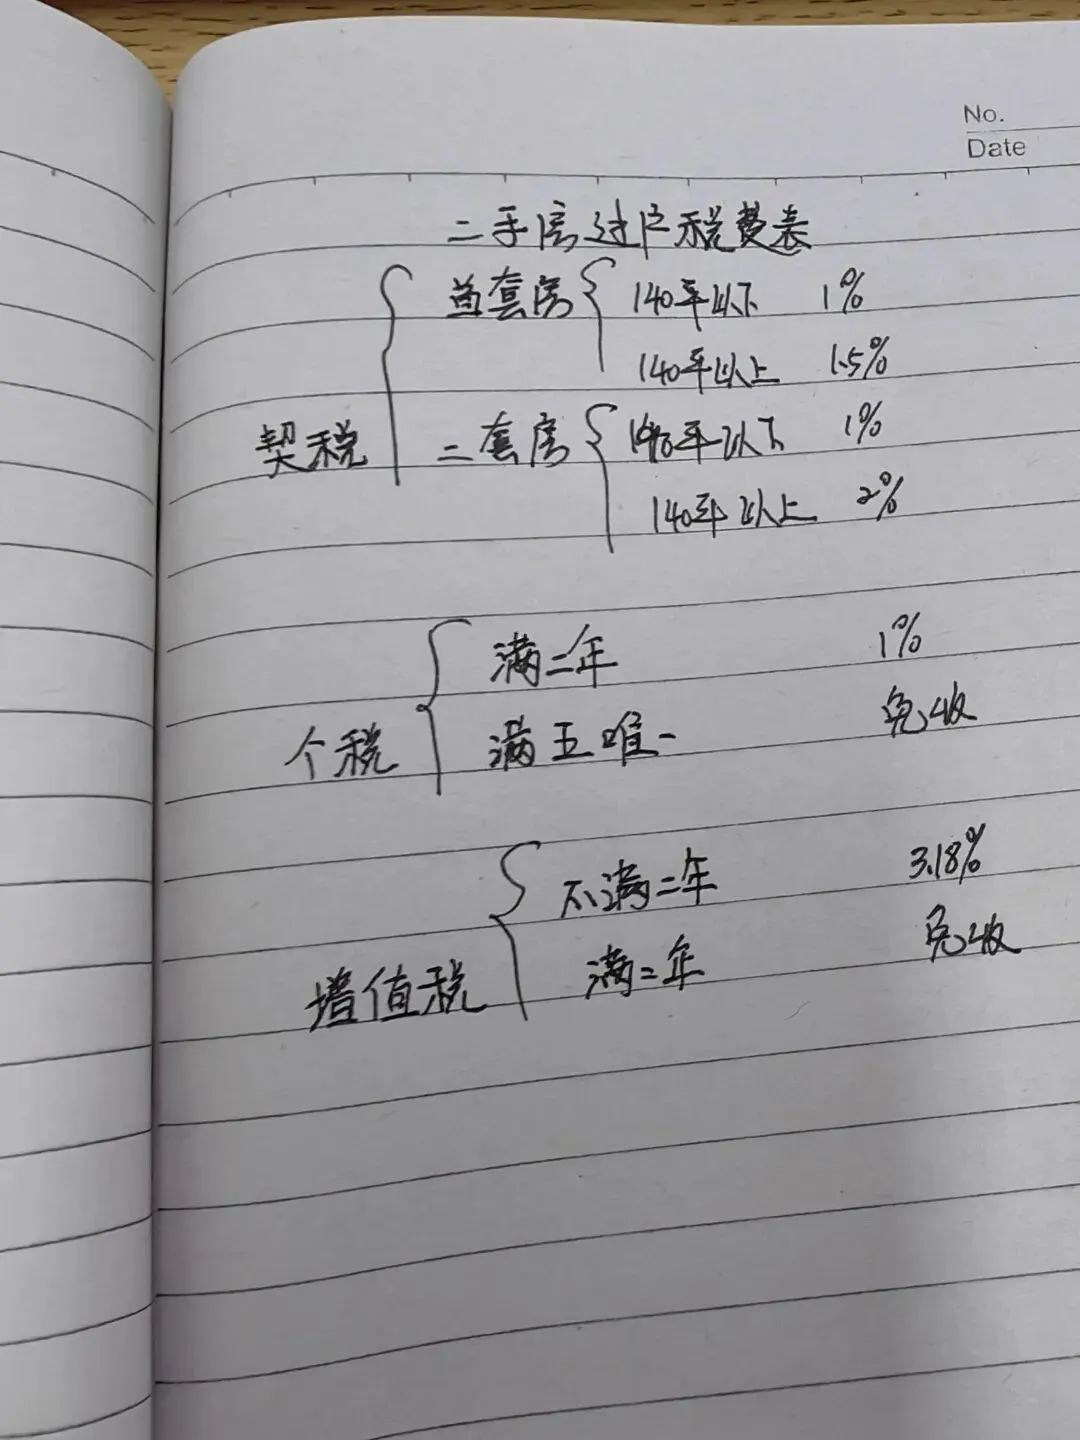 No.
Date
二手房过户税费表
契税
首套房
140平以下 1%
140平以上 1.5%
二套房
140平以下 1%
140平以上 2%
个税
满二年 1%
满五唯一 免收
增值税
不满二年 3.18%
满二年 免收